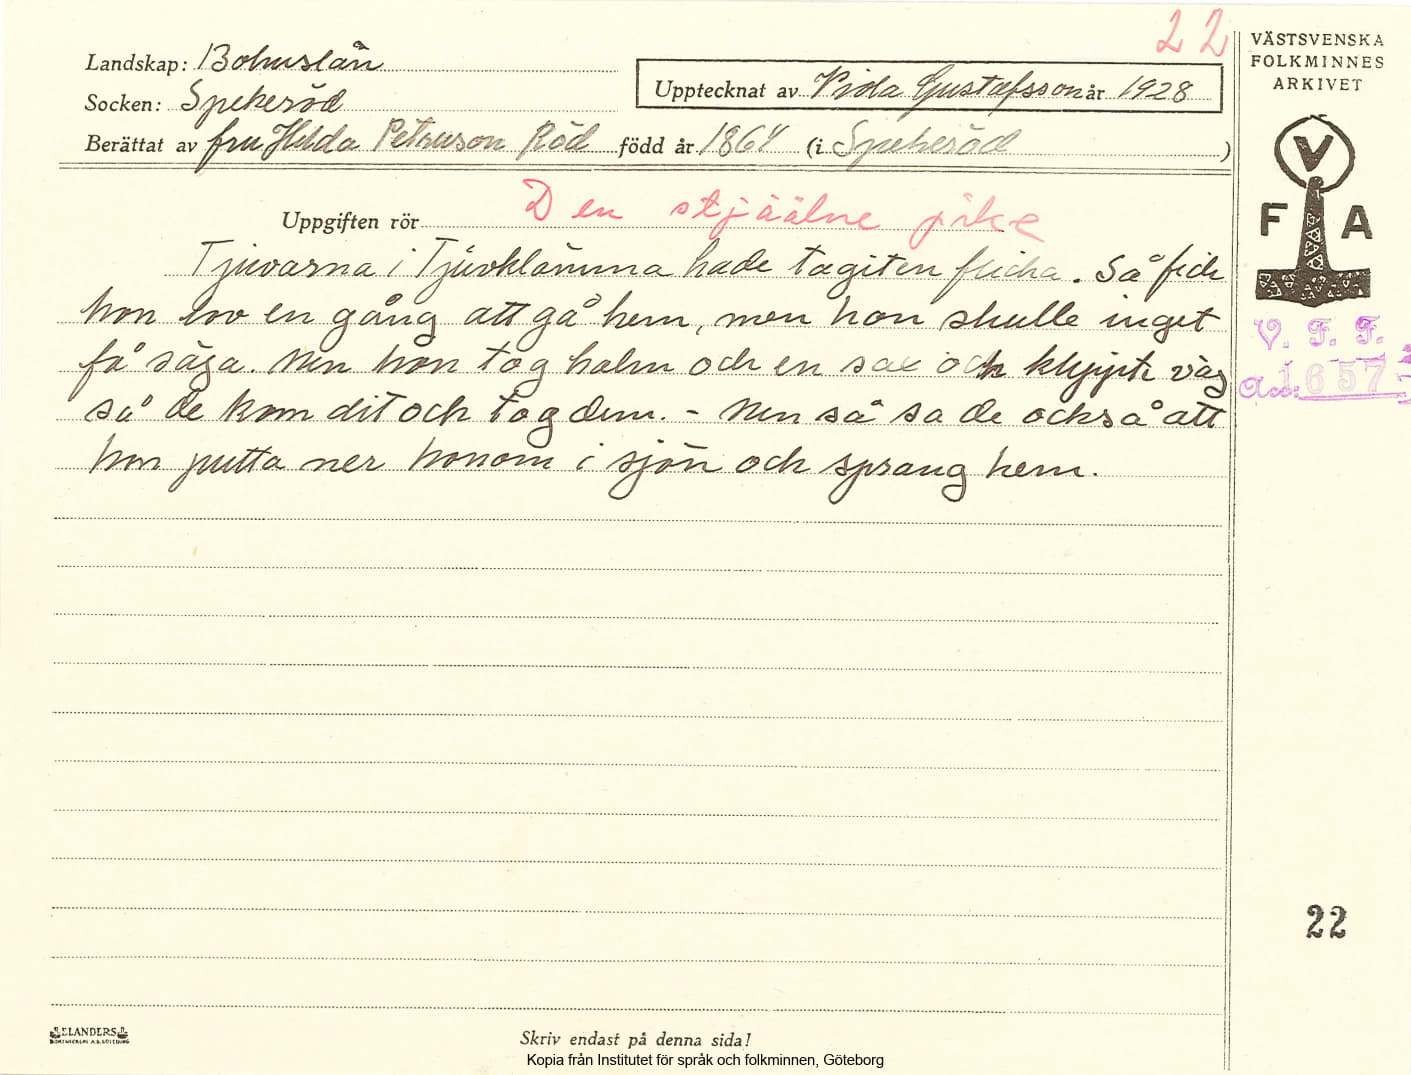 22
Landskap: Bohuslän
Socken: Spekeröd
Upptecknat av Vida Gustafsson år 1928
Berättat av fru Hilda Petruson Röd född år 1864 (i Spekeröd)
Uppgiften rör
Den
Tjuvarna i Tjuvklämma hade tagit en flicka. Så fick
hon lov en gång att gå hem, men hon skulle inget
få säga. Men hon tog halm och en sax och klippte väg
så de kom dit och tog dem. - Men så sa de också att
hon putta ner honom i sjön och sprang hem.
VÄSTSVENSKA
FOLKMINNES
ARKIVET
V
F A
V. F. F.
Acc. 1657
22
ELANDERS
Skriv endast på denna sida!
Kopia från Institutet för språk och folkminnen, Göteborg